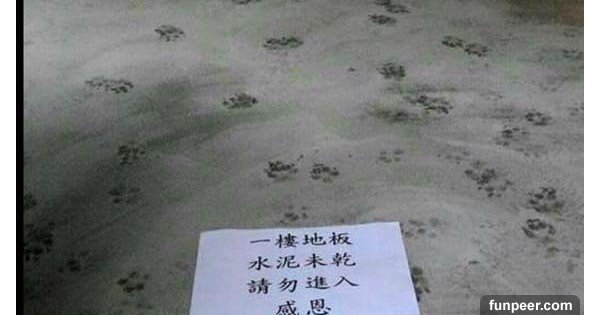 一樓地板
水泥未乾
請勿進入
感恩
funpeer.com